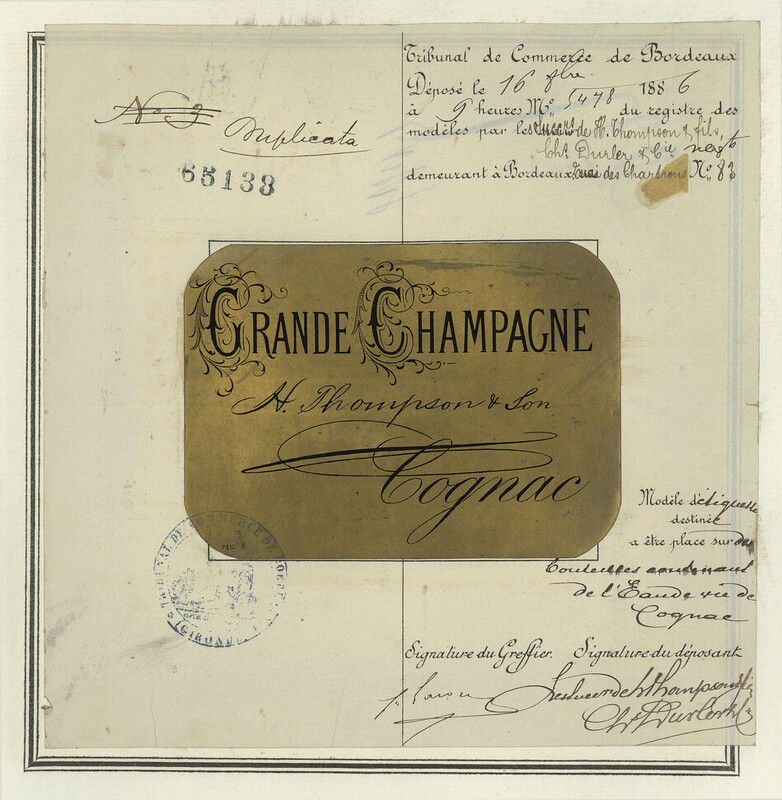 Tribunal de Commerce de Bordeaux
Déposé le 16 8bre 1886
à 9 heures Nº 5478 du registre des
modèles par les succrs de H. Thompson & fils,
Chs Durler & Cie négts
demeurant à Bordeaux, quai des Chartrons Nº 83
No 3
Duplicata
65138
GRANDE CHAMPAGNE
H. Thompson & Son
Cognac
Modèle d'étiquette
destinée
a être place sur des
bouteilles contenant
de l'Eau de vie de
Cognac
TRIBUNAL DE COMMERCE DE BORDEAUX
(GIRONDE)
Signature du Greffier. Signature du déposant
Les succr de H Thompson & fils
Chs Durler & Cie